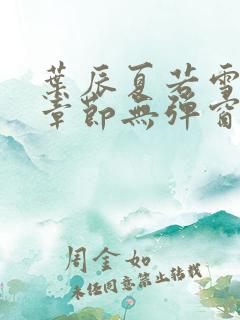 葉辰夏若雪
章節無彈窗
周金如
未经同意禁止转载